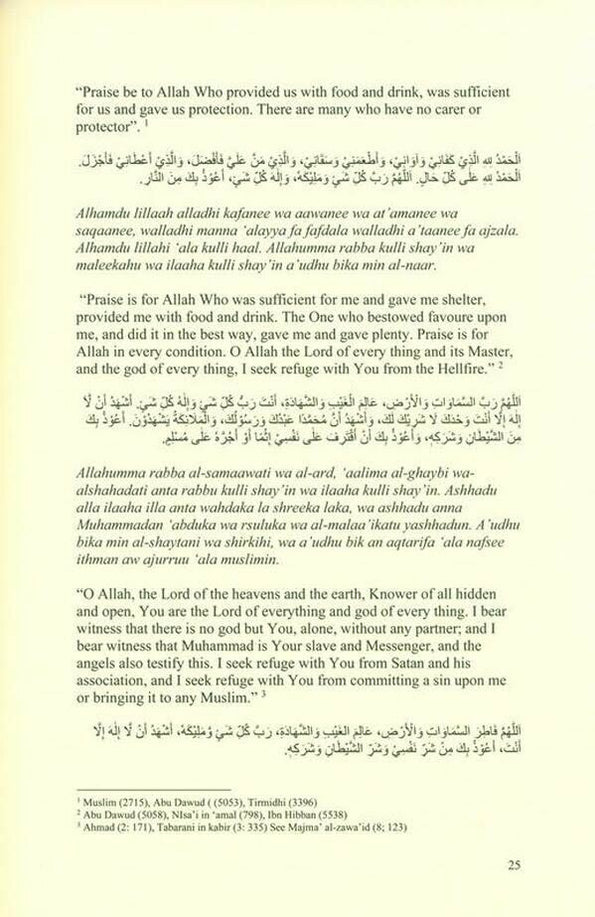 “Praise be to Allah Who provided us with food and drink, was sufficient
for us and gave us protection. There are many who have no carer or
protector”. 1
اَلْحَمْدُ للهِ الَّذِيْ كَفَانِيْ وَآوَانِيْ، وَأَطْعَمَنِيْ وَسَقَانِيْ، وَالَّذِيْ مَنَّ عَلَيَّ فَأَفْضَلَ، وَالَّذِيْ أَعْطَانِيْ فَأَجْزَلَ.
اَلْحَمْدُ للهِ عَلَى كُلِّ حَالٍ. اَللّٰهُمَّ رَبَّ كُلِّ شَيْ وَمَلِيْكَهُ، وَإِلٰهَ كُلِّ شَيْ، أَعُوْذُ بِكَ مِنَ النَّارِ.
Alhamdu lillaah alladhi kafanee wa aawanee wa at’amanee wa
saqaanee, walladhi manna ‘alayya fa fafdala walladhi a’taanee fa ajzala.
Alhamdu lillahi ‘ala kulli haal. Allahumma rabba kulli shay’in wa
maleekahu wa ilaaha kulli shay’in a’udhu bika min al-naar.
“Praise is for Allah Who was sufficient for me and gave me shelter,
provided me with food and drink. The One who bestowed favoure upon
me, and did it in the best way, gave me and gave plenty. Praise is for
Allah in every condition. O Allah the Lord of every thing and its Master,
and the god of every thing, I seek refuge with You from the Hellfire.” 2
اَللّٰهُمَّ رَبَّ السَّمَاوَاتِ وَالْأَرْضِ، عَالِمَ الْغَيْبِ وَالشَّهَادَةِ، أَنْتَ رَبُّ كُلِّ شَيْ وَإِلٰهُ كُلِّ شَيْ. أَشْهَدُ أَنْ لَّا
إِلٰهَ إِلَّا أَنْتَ وَحْدَكَ لَا شَرِيْكَ لَكَ، وَأَشْهَدُ أَنَّ مُحَمَّدًا عَبْدُكَ وَرَسُوْلُكَ، وَالْمَلَائِكَةُ يَشْهَدُوْنَ. أَعُوْذُ بِكَ
مِنَ الشَّيْطَانِ وَشَرَكِهِ، وَأَعُوْذُ بِكَ أَنْ أَقْتَرِفَ عَلَى نَفْسِيْ إِثْمًا أَوْ أَجُرَّهُ عَلَى مُسْلِمٍ.
Allahumma rabba al-samaawati wa al-ard, ‘aalima al-ghaybi wa-
alshahadati anta rabbu kulli shay’in wa ilaaha kulli shay’in. Ashhadu
alla ilaaha illa anta wahdaka la shreeka laka, wa ashhadu anna
Muhammadan ‘abduka wa rsuluka wa al-malaa’ikatu yashhadun. A’udhu
bika min al-shaytani wa shirkihi, wa a’udhu bik an aqtarifa ‘ala nafsee
ithman aw ajurruu ‘ala muslimin.
“O Allah, the Lord of the heavens and the earth, Knower of all hidden
and open, You are the Lord of everything and god of every thing. I bear
witness that there is no god but You, alone, without any partner; and I
bear witness that Muhammad is Your slave and Messenger, and the
angels also testify this. I seek refuge with You from Satan and his
association, and I seek refuge with You from committing a sin upon me
or bringing it to any Muslim.” 3
اَللّٰهُمَّ فَاطِرَ السَّمَاوَاتِ وَالْأَرْضِ، عَالِمَ الغَيْبِ وَالشَّهَادَةِ، رَبَّ كُلِّ شَيْ وَّمَلِيْكَهُ، أَشْهَدُ أَنْ لَّا إِلٰهَ إِلَّا
أَنْتَ، أَعُوْذُ بِكَ مِنْ شَرِّ نَفْسِيْ وَشَرِّ الشَّيْطَانِ وَشَرَكِهِ.
1 Muslim (2715), Abu Dawud ( (5053), Tirmidhi (3396)
2 Abu Dawud (5058), NIsa’i in ‘amal (798), Ibn Hibban (5538)
3 Ahmad (2: 171), Tabarani in kabir (3: 335) See Majma’ al-zawa’id (8; 123)
25